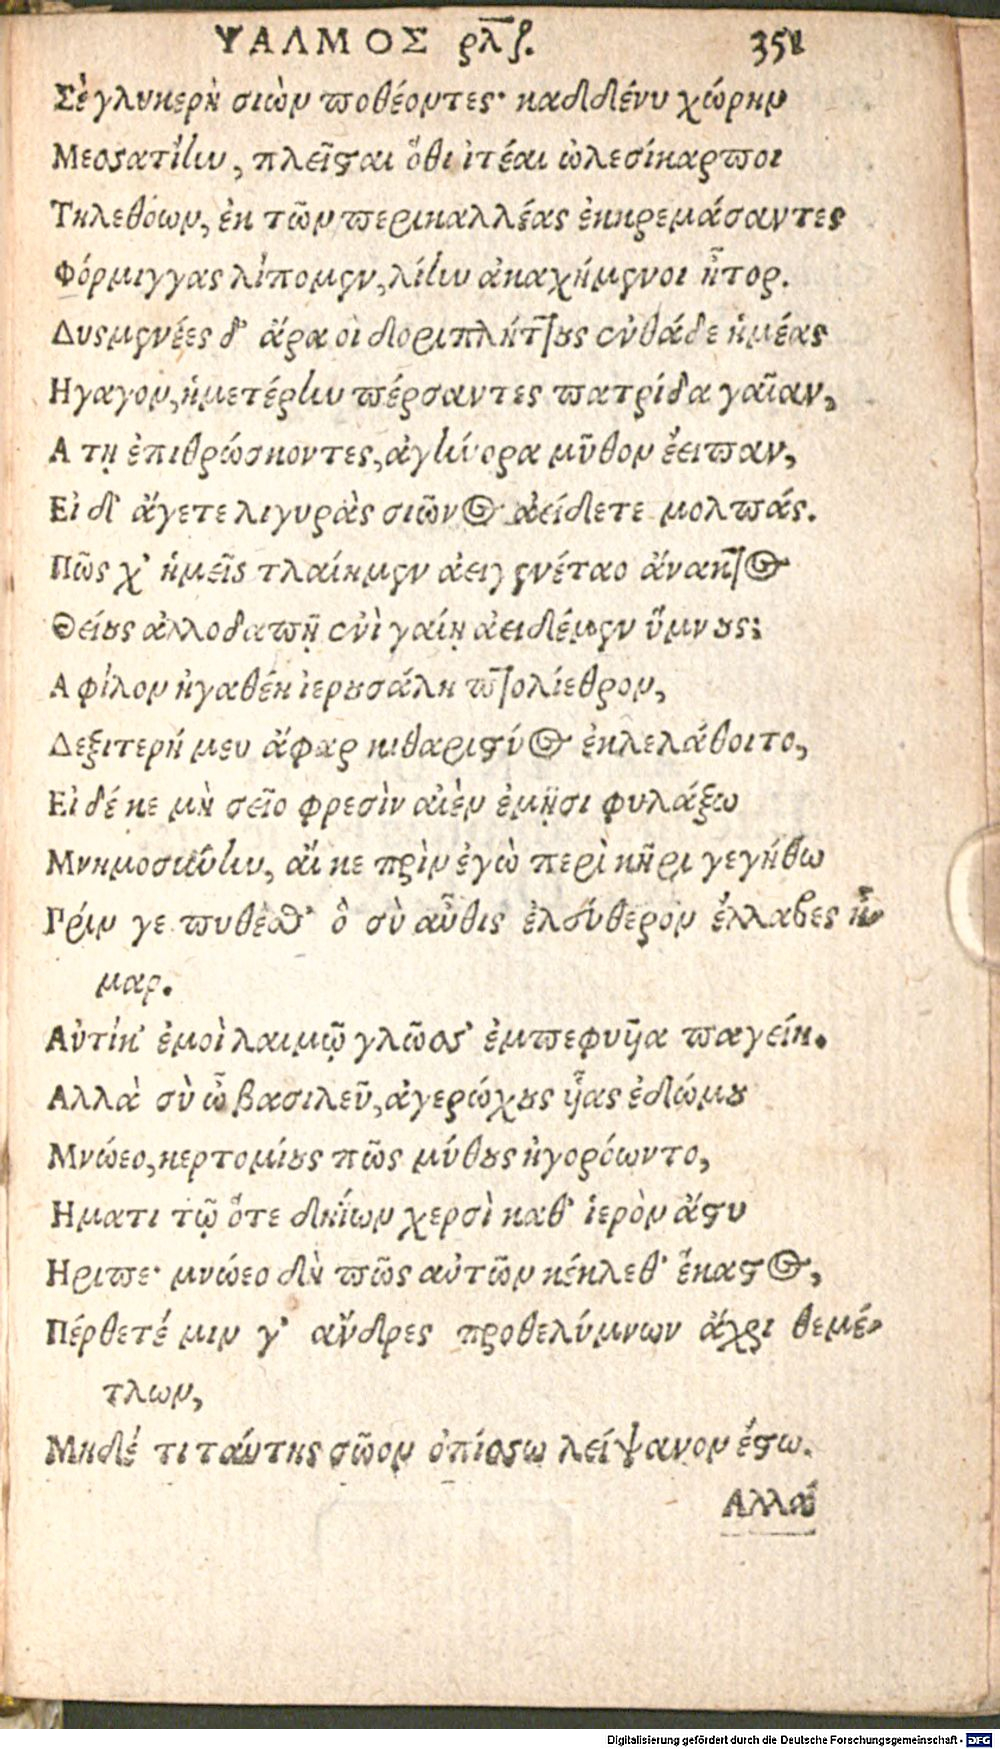 ΨΑΛΜΟΣ ρλϛ. 351
Σὲ γλυκερὴ σιὼν ποθέοντες· καδδένυ χώρην
Μεσσατίην, πλεῖσται ὅθι ἰτέαι ὠλεσίκαρποι
Τηλεθόων, ἐκ τῶν περικαλλέας ἐκκρεμάσαντες
Φόρμιγγας λίπομεν, λίην ἀκαχήμενοι ἦτορ.
Δυσμενέες δ' ἄρα οἱ δοριπλήττους ἐνθάδε ἡμέας
Ηγαγον, ἡμετέρην πέρσαντες πατρίδα γαῖαν,
Α τῃ ἐπιθρώσκοντες, ἀγήνορα μῦθον ἔειπαν,
Εἰ δ' ἄγετε λιγυρὰς σιῶνος ἀείδετε μολπάς.
Πῶς χ' ἡμεῖς τλαίημεν ἀειγενέταο ἄνακτος
Θείους ἀλλοδαπῇ ἐνὶ γαίῃ ἀειδέμεν ὕμνους;
Α φίλον ἠγαθέη ἱερουσάλη πτολίεθρον,
Δεξιτερή μευ ἄφαρ κιθαριστύος ἐκλελάθοιτο,
Εἰ δέ κε μὴ σεῖο φρεσὶν αἰὲν ἐμῇσι φυλάξω
Μνημοσύνην, αἴ κε πρὶν ἐγὼ περὶ κῆρι γεγήθω
Γρίν γε πυθέσθ' ὃ σὺ αὖθις ἐλεύθερον ἔλλαβες ἦ-
μαρ.
Αὐτίκ' ἐμοὶ λαιμῷ γλῶσσ' ἐμπεφυῖα παγείη.
Αλλὰ σὺ ὦ βασιλεῦ, ἀγερώχους υἷας ἐδώμου
Μνώεο, κερτομίους πῶς μύθους ἠγορόωντο,
Ηματι τῷ ὅτε δηΐων χερσὶ καθ' ἱερὸν ἄστυ
Ηριπε· μνώεο δὴ πῶς αὐτῶν κέκλεθ' ἕκαστος,
Πέρθετέ μιν γ' ἄνδρες προθελύμνων ἄχρι θεμέ-
τλων,
Μηδέ τι ταύτης σῶον ὀπίσσω λείψανον ἔστω.
Αλλὰ
Digitalisierung gefördert durch die Deutsche Forschungsgemeinschaft - DFG